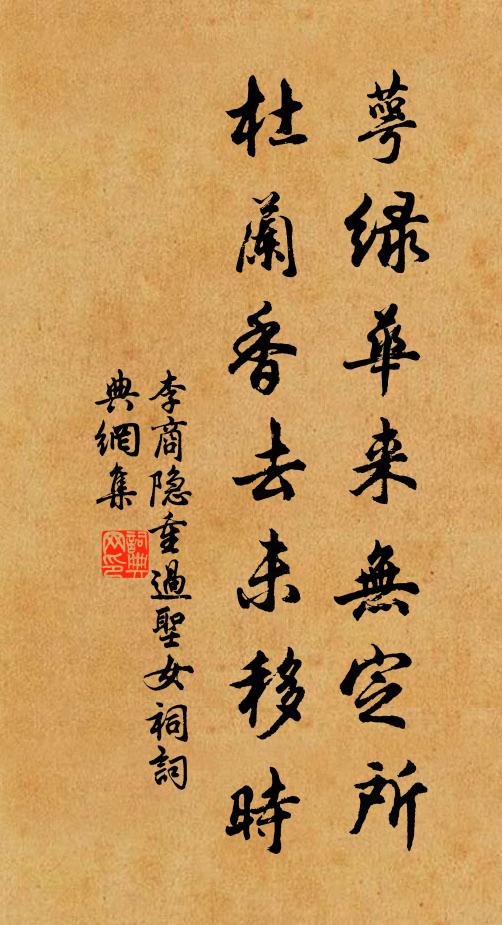 萼绿華来無定所
杜蘭香去未移時
李商隐重過聖女祠詞
典網集
詞典网印